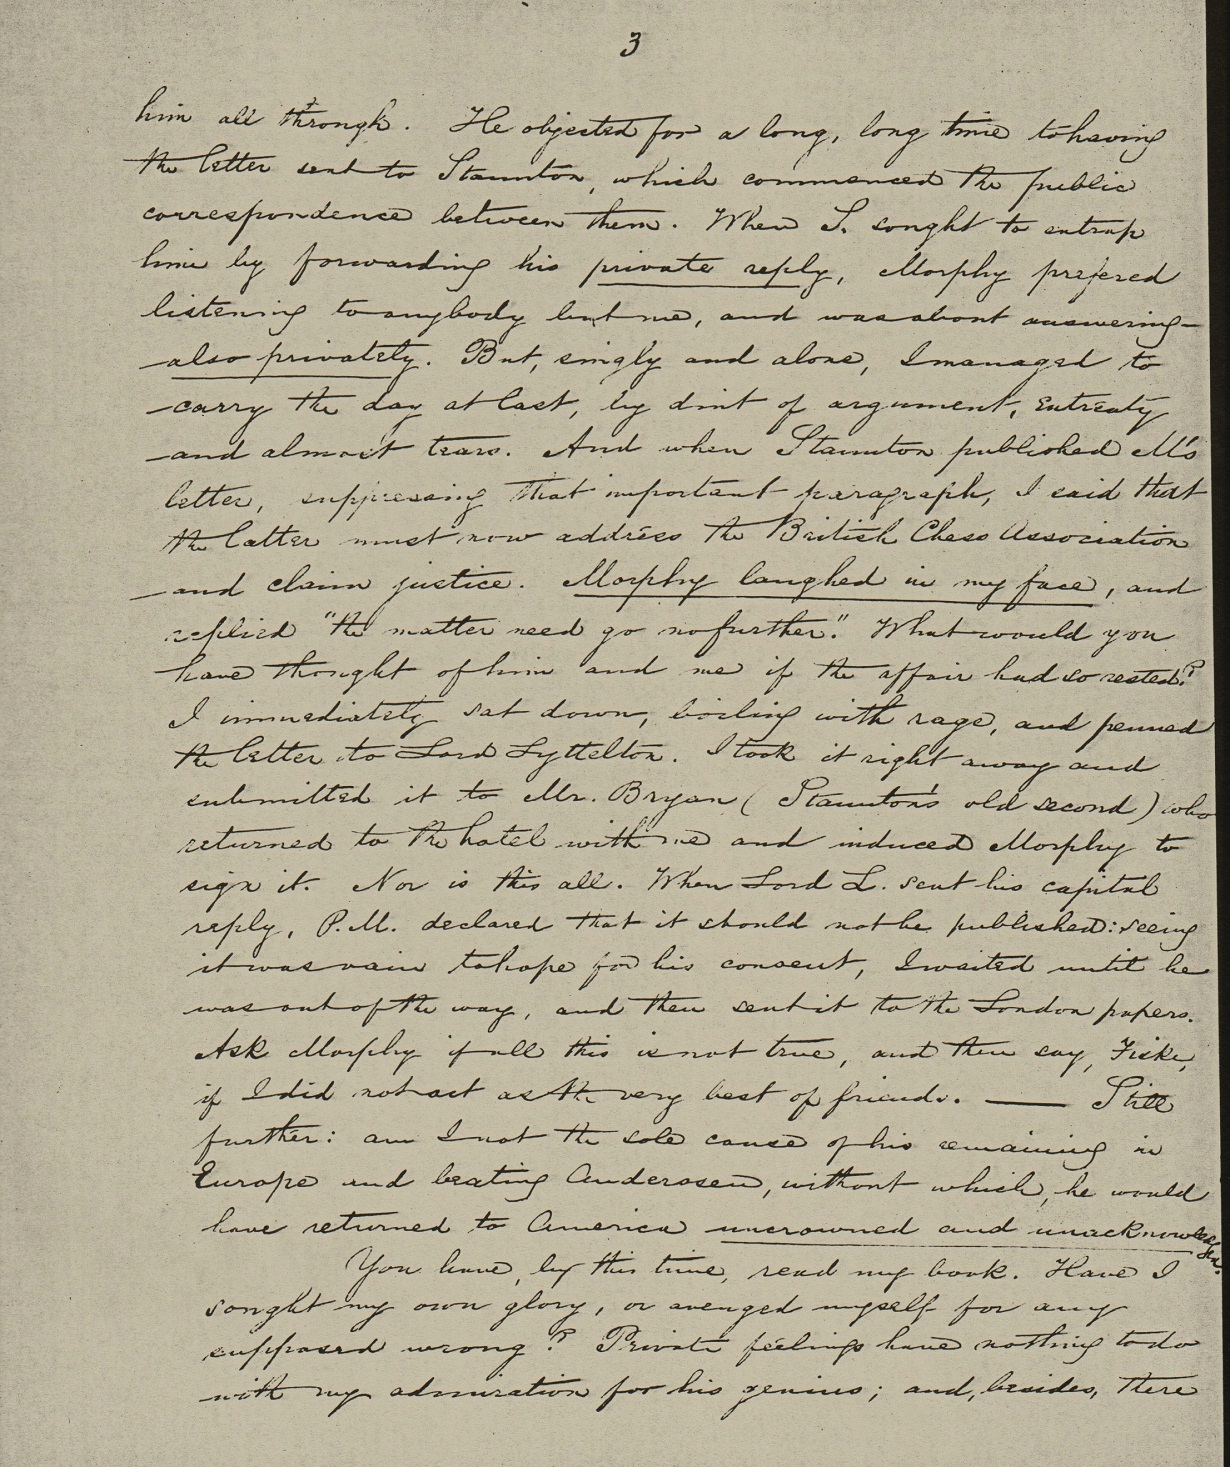 3
him all through. He objected for a long, long time to having
the letter sent to Staunton, which commenced the public
correspondence between them. When S. sought to entrap
him by forwarding his private reply, Morphy prefered
listening to anybody but me, and was about answering
also privately. But, singly and alone, I managed to
carry the day at last, by dint of argument, entreaty
and almost tears. And when Staunton published M's
letter, suppressing that important paragraph, I said that
the latter must now address the British Chess Association
and claim justice. Morphy laughed in my face, and
replied "the matter need go no further." What would you
have thought of him and me if the affair had so rested?
I immediately sat down, boiling with rage, and penned
the letter to Lord Lyttelton. I took it right away and
submitted it to Mr. Bryan (Staunton's old second) who
returned to the hotel with me and induced Morphy to
sign it. Nor is this all. When Lord L. sent his capital
reply, P.M. declared that it should not be published: seeing
it was vain to hope for his consent, I waited until he
was out of the way, and then sent it to the London papers.
Ask Morphy if all this is not true, and then say, Fiske,
if I did not act as the very best of friends. — Still
further: am I not the sole cause of his remaining in
Europe and beating Anderssen, without which, he would
have returned to America uncrowned and unacknowledged.
You have, by this time, read my book. Have I
sought my own glory, or avenged myself for any
supposed wrong? Private feelings have nothing to do
with my admiration for his genius; and, besides, there